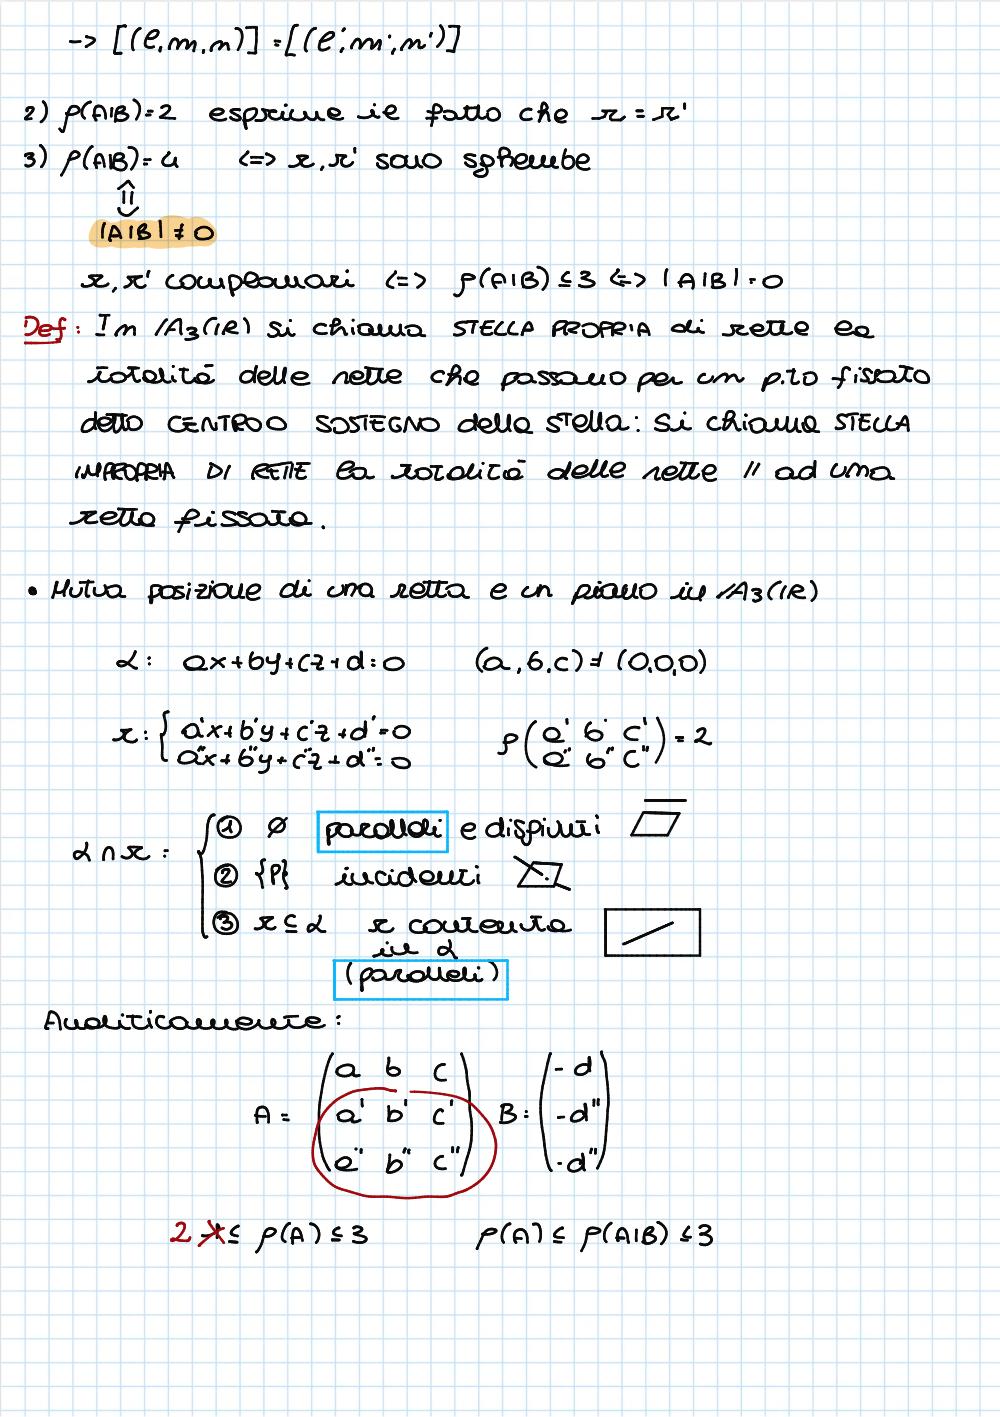 -> [(l,m,n)] = [(l',m',n')]
2) ρ(A|B)=2 esprime il fatto che r = r'
3) ρ(A|B)=4 <=> r,r' sono sghembe
⇕
|A|B| ≠ 0
r,r' complanari <=> ρ(A|B) ≤ 3 <=> |A|B| = 0
Def: In A₃(R) si chiama STELLA PROPRIA di rette la
totalità delle rette che passano per un p.to fissato
detto CENTRO O SOSTEGNO della stella: si chiama STELLA
IMPROPRIA DI RETTE la totalità delle rette // ad una
retta fissata.
• Mutua posizione di una retta e un piano in A₃(R)
α: ax+by+cz+d=0 (a,b,c) ≠ (0,0,0)
r: { a'x+b'y+c'z+d'=0 ρ ( a' b' c' ) = 2
a''x+b''y+c''z+d''=0 a'' b'' c''
α ∩ r = { ① ∅ paralleli e disgiunti
② {P} incidenti
③ r ⊆ α r contenuta
in α
(paralleli)
Analiticamente:
a b c - d
A = a' b' c' B = -d''
a'' b'' c'' -d''
2 1 ≤ ρ(A) ≤ 3 ρ(A) ≤ ρ(A|B) ≤ 3